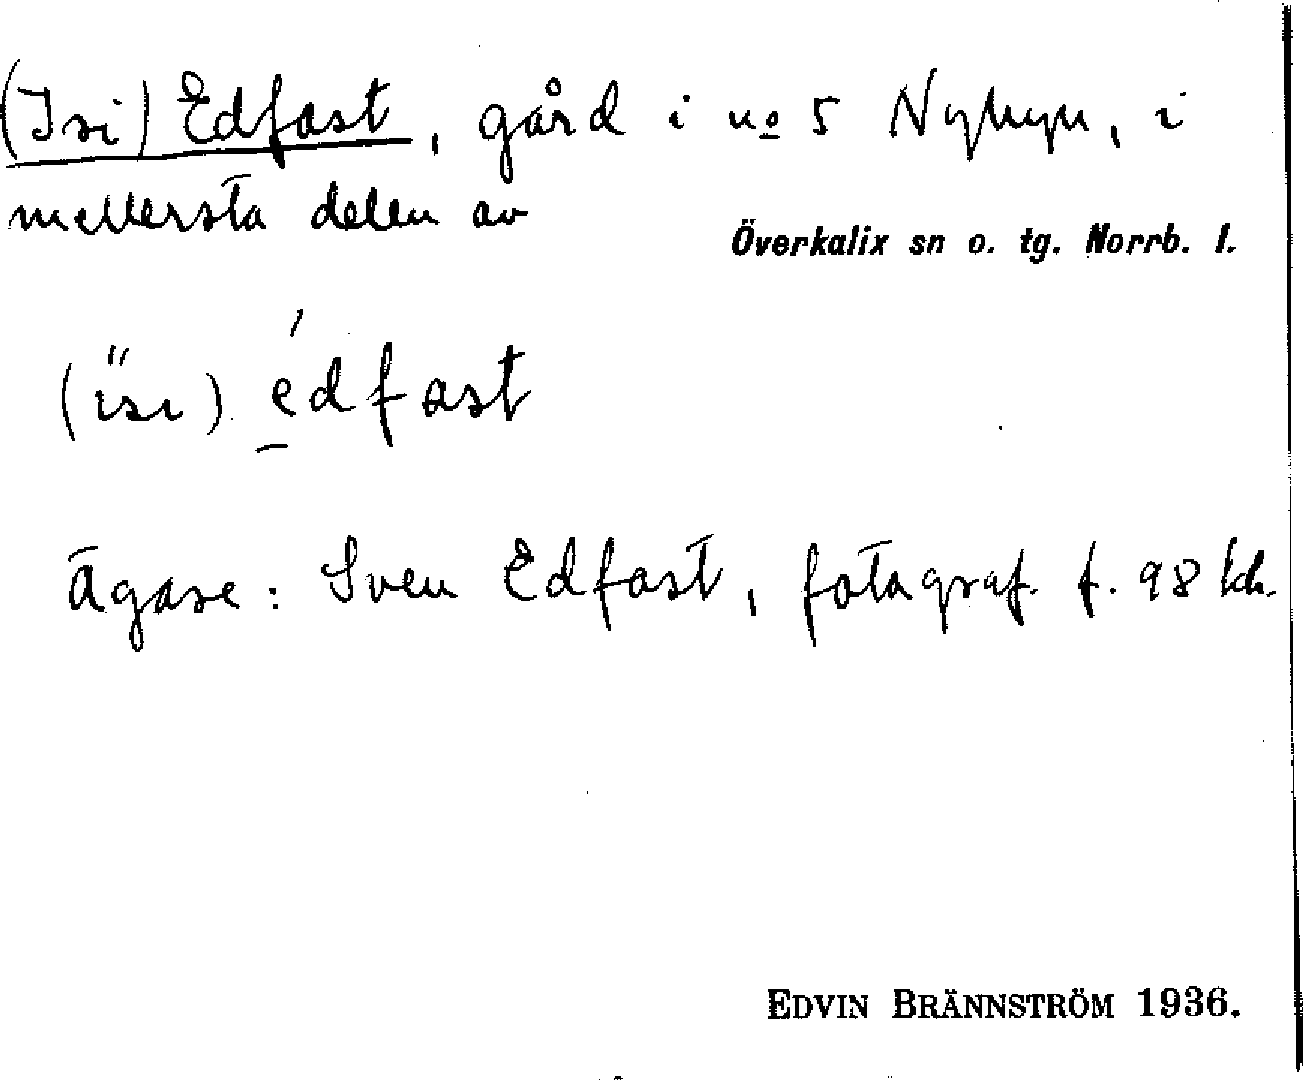 (Isi) Edfast, gård i no 5 Nybyn, i
mellersta delen av
Överkalix sn o. tg. Norrb. l.
( isi) édfast
Ägare: Sven Edfast, fotograf f. 98 kh.
EDVIN BRÄNNSTRÖM 1936.